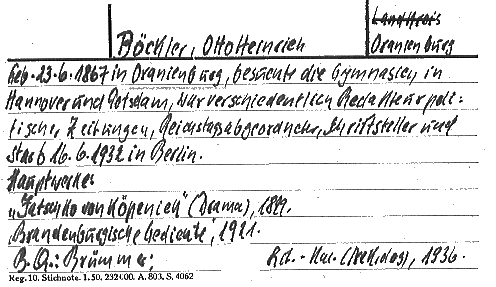 Böckler, Ottoheinrich
Landkreis
Oranienburg
Geb. 23.6.1867 in Oranienburg, besuchte die Gymnasien in
Hannover und Potsdam, war verschiedentlich Redakteur poli-
tischer Zeitungen, Reichstagsabgeordneter, Schriftsteller und
starb 16.6.1932 in Berlin.
Hauptwerke:
(Drama), 1899.
"Brandenburgische Gedichte", 1921.
B.Q.: Brümmer; 1936.
Reg. 10. Stichnote. 1. 50. 232400. A. 803. S. 4062